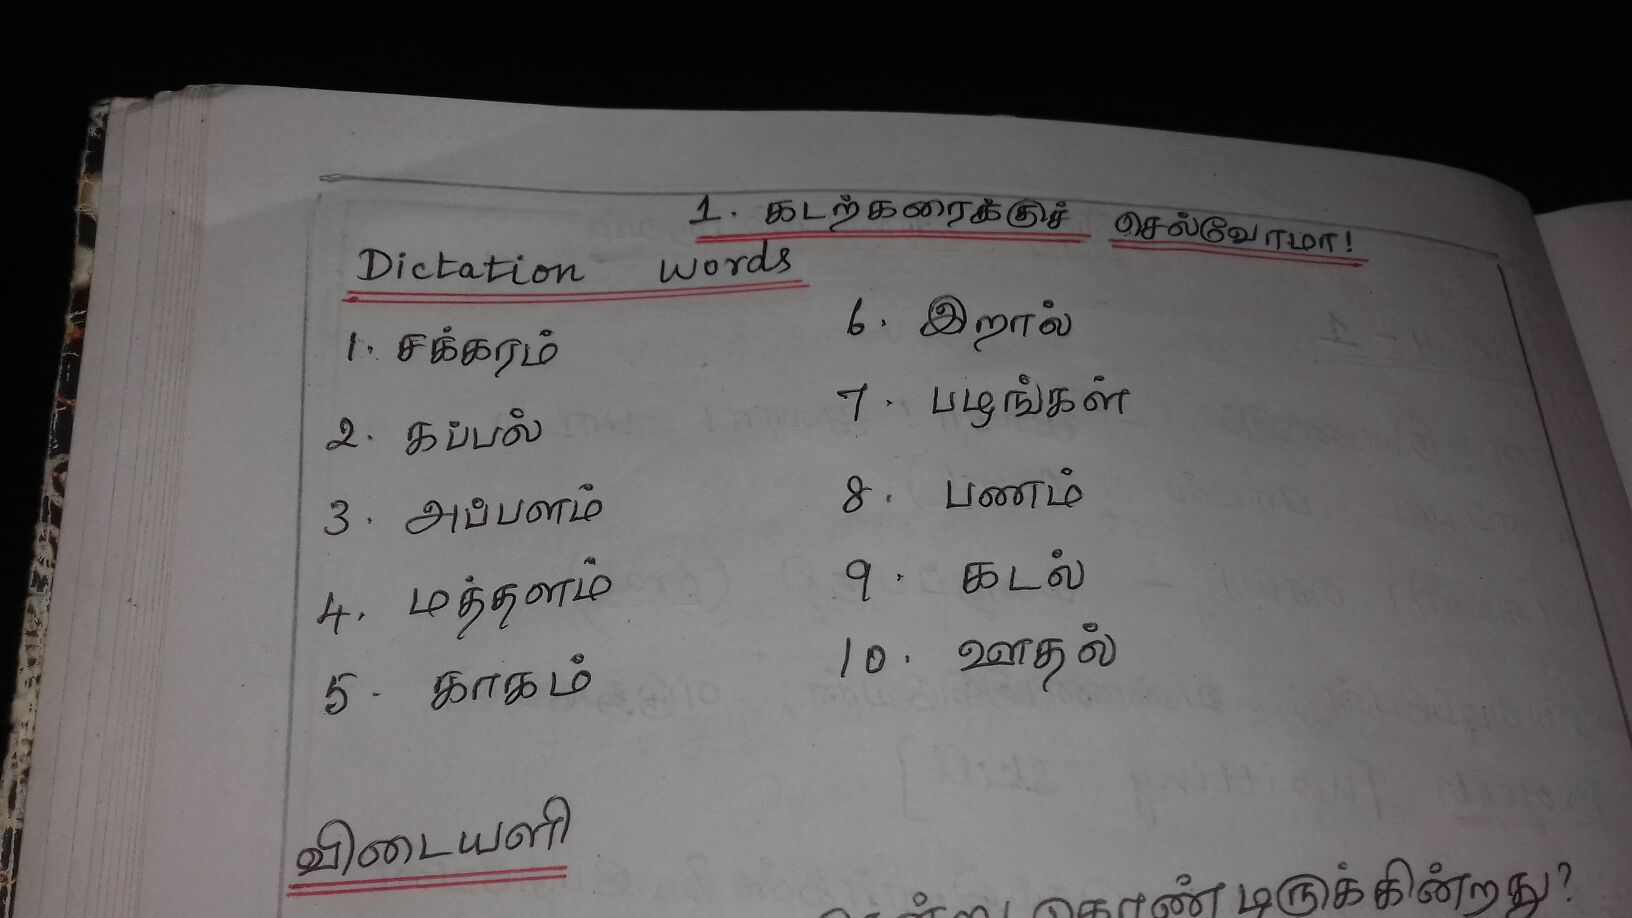 1. கடற்கரைக்குச் செல்வோமா!
Dictation words
1. சக்கரம்
2. கப்பல்
3. அப்பளம்
4. மத்தளம்
5. காகம்
6. இறால்
7. பழங்கள்
8. பணம்
9. கடல்
10. ஊதல்
விடையளி
கொண்டிருக்கின்றது?